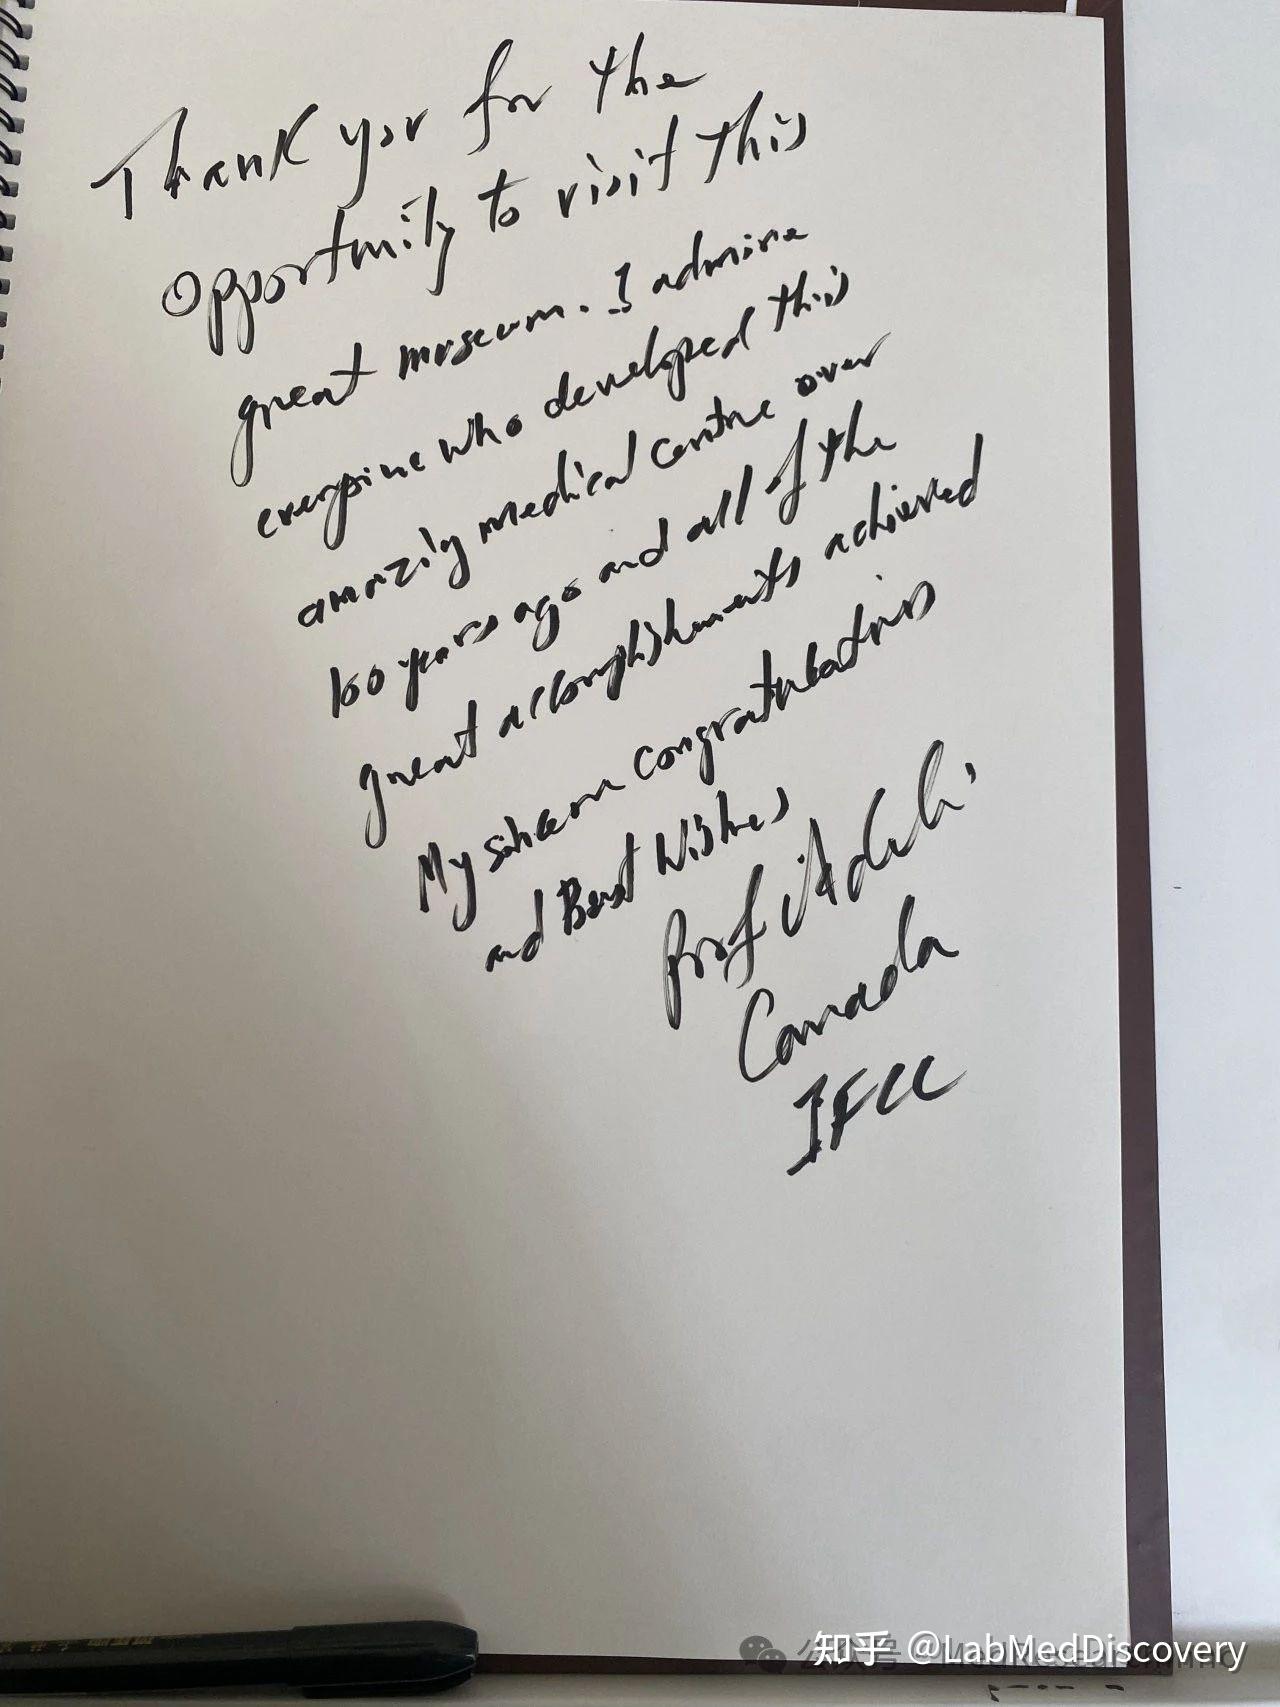 Thank you for the
opportunity to visit this
great museum. I admire
everyone who developed this
amazing medical centre over
100 years ago and all of the
great accomplishments achieved
My sincere congratulations
and Best Wishes
Prof Adeli
Canada
IFCC
知乎 @LabMedDiscovery
公众号